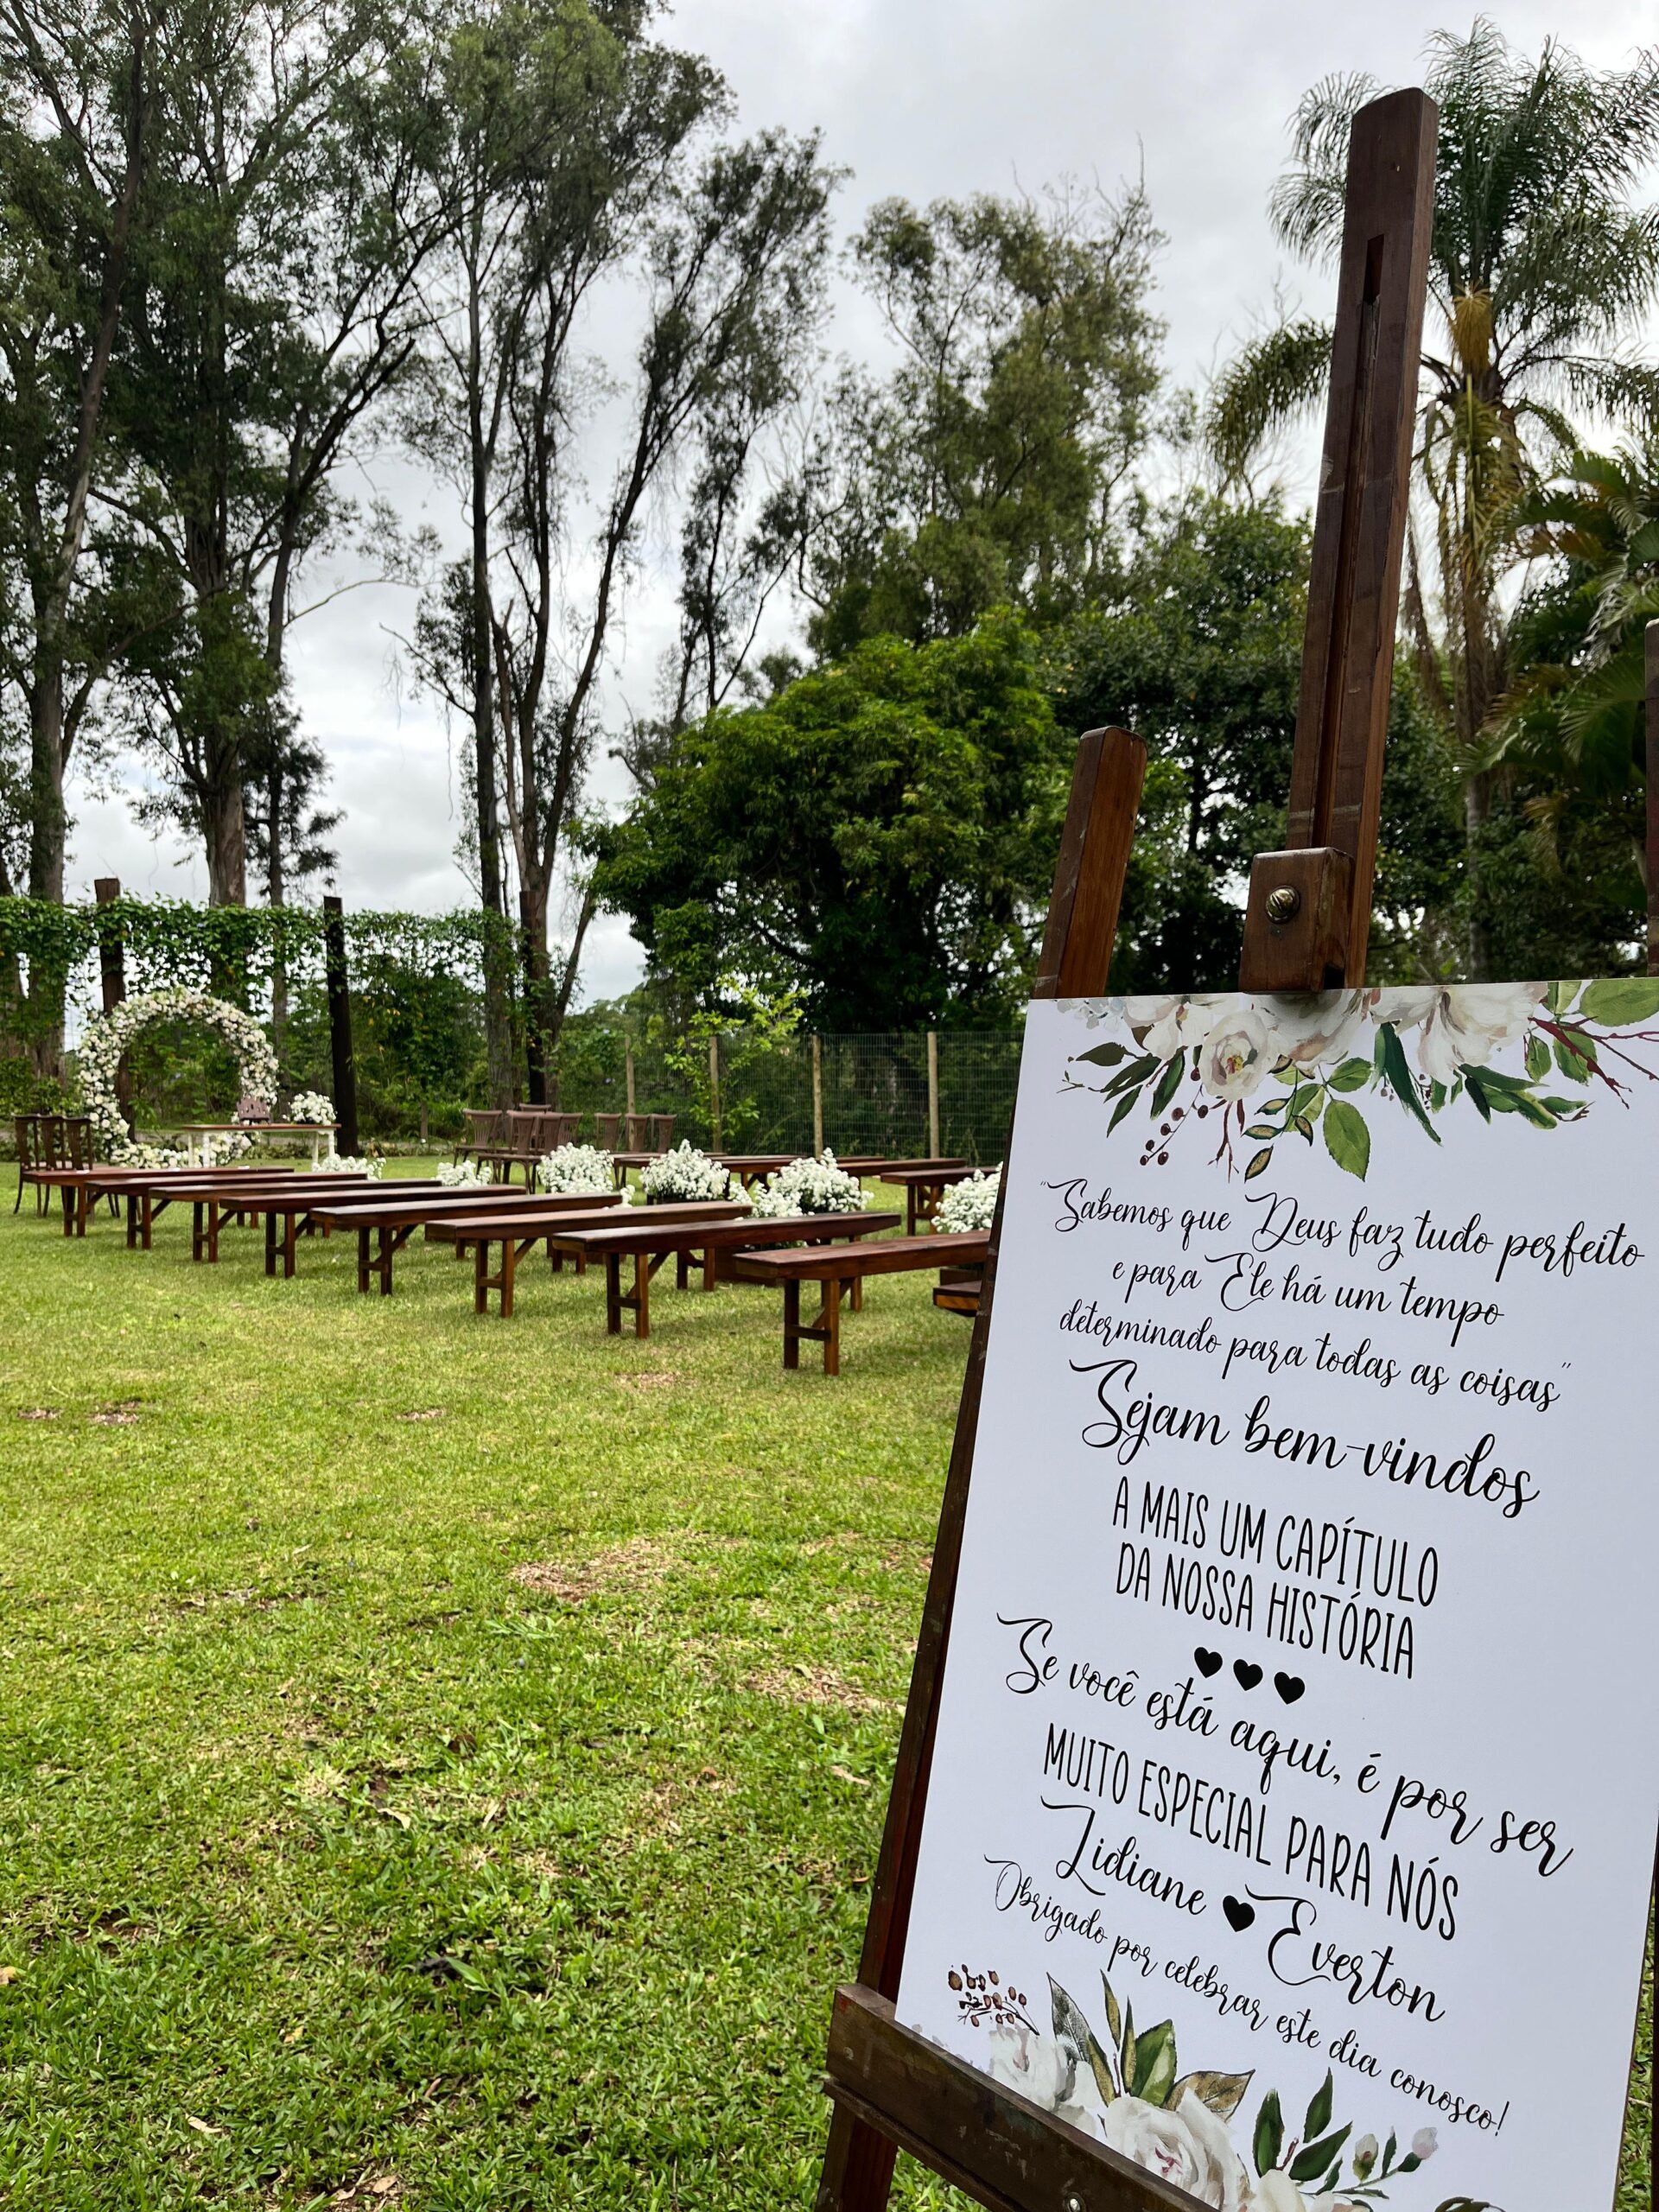 "Sabemos que Deus faz tudo perfeito
e para Ele há um tempo
determinado para todas as coisas"
Sejam bem-vindos
A MAIS UM CAPÍTULO
DA NOSSA HISTÓRIA
Se você está aqui, é por ser
MUITO ESPECIAL PARA NÓS
Lidiane ♥ Everton
Obrigado por celebrar este dia conosco!